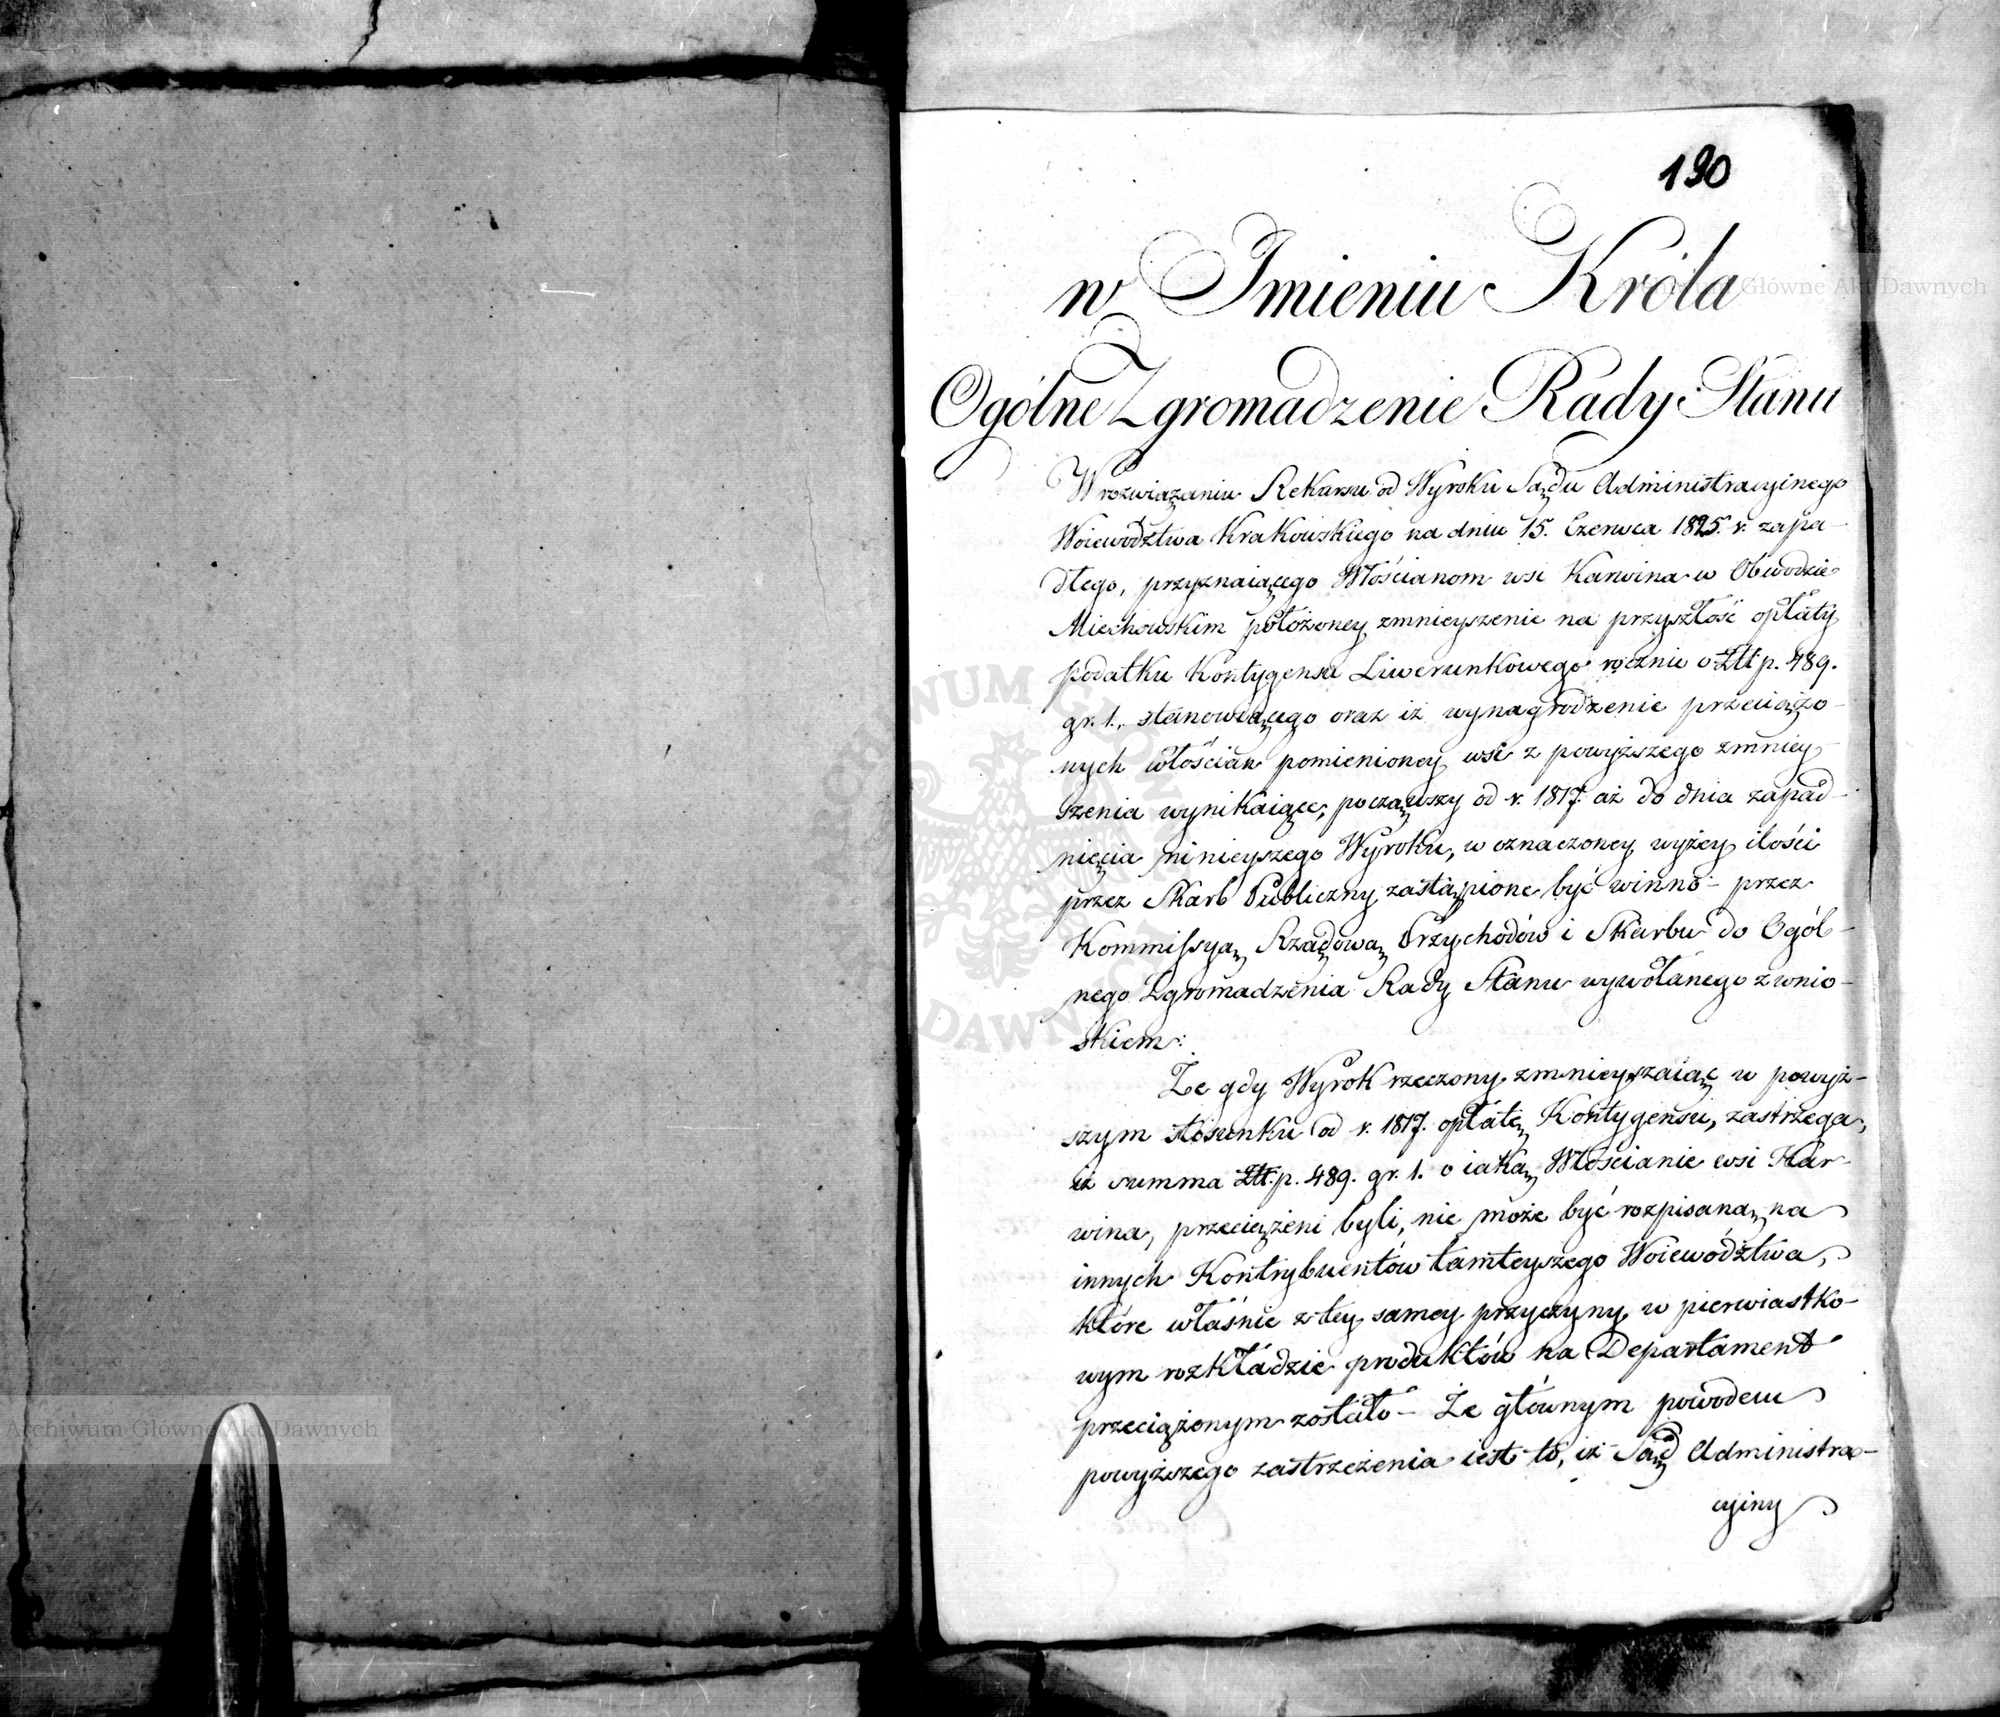 190
w Imieniu Króla
Ogólne Zgromadzenie Rady Stanu
W rozwiązaniu Rekursu od Wyroku Sądu Administracyinego
Woiewództwa Krakowskiego na dniu 15. Czerwca 1825. r. zapa-
dłego, przyznaiącego Włościanom wsi Karwina w Obwodzie
Miechowskim położoney zmnieyszenie na przyszłość opłaty
podatku Kontygensu Liwerunkowego rocznie o Złt p. 489.
gr. 1., stanowiącego oraz iż wynagrodzenie przeciążo-
nych włościan pomienioney wsi z powyższego zmniey-
szenia wynikaiące, począwszy od r. 1817. aż do dnia zapad-
nięcia ninieyszego Wyroku, w oznaczoney wyżey ilości
przez Skarb Publiczny zastąpione być winno - przez
Kommissyą Rządową Przychodów i Skarbu do Ogól-
nego Zgromadzenia Rady Stanu wywołanego z wnio-
skiem:
Że gdy Wyrok rzeczony zmnieyszaiąc w powyż-
szym stosunku od r. 1817. opłatę Kontygensu, zastrzega,
iż summa Złt. p. 489. gr. 1. o iaką Włościanie wsi Kar-
wina, przeciążeni byli, nie może być rozpisaną na
innych Kontrybuentów tamteyszego Woiewództwa,
które właśnie z tey samey przyczyny w pierwiastko-
wym rozkładzie produktów na Departament
przeciążonym zostało - Że głównym powodem
powyższego zastrzeżenia iest to, iż Sąd Administra-
cyiny
Archiwum Główne Akt Dawnych
Archiwum Główne Akt Dawnych
ARCHIWUM GŁÓWNE AKT DAWNYCH